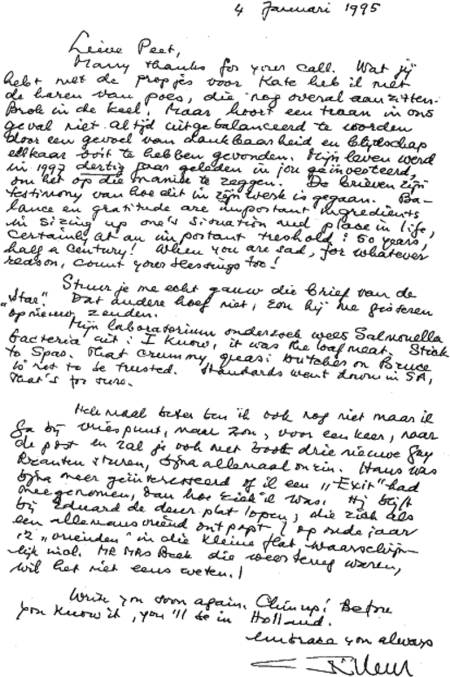 4 Januari 1995
Lieve Peet,
Many thanks for your call. Wat jij
hebt met de propjes voor Kate heb ik met
de haren van poes, die nog overal aan zitten.
Brok in de keel. Maar hoort een traan in ons
geval niet altijd uitgebalanceerd te worden
door een gevoel van dankbaarheid en blijdschap
elkaar ooit te hebben gevonden. Mijn leven werd
in 1993 dertig jaar geleden in jou geïnvesteerd,
om het op die manier te zeggen. De brieven zijn
testimony van hoe dit in zijn werk is gegaan. Ba-
lance en gratitude are important ingredients
in sizing up one's situation and place in life,
certainly at an important treshold: 50 years,
half a century! When you are sad, for whatever
reason, count your blessings too!
Stuur je me echt gauw die brief van de
"Star". Dat andere hoef niet, zou hij me gisteren
opnieuw zenden.
Mijn laboratorium onderzoek wees Salmonella
bacteria uit: I know, it was the loaf meat. Stick
to Spar. That crummy, quasi Dutchies on Bruce
is not to be trusted. Standards went down in SA,
that's for sure.
Helemaal beter ben ik ook nog niet maar ik
ga bij vriespunt, maar zon, voor een keer, naar
de post en zal je ook met boot drie nieuwe Gay
Kranten sturen, bijna allemaal onzin. Hans was
bijna meer geïnteresseerd of ik een "Exit" had
meegenomen, dan hoe ziek ik was. Hij blijft
bij Eduard de deur plat lopen, die zich als
een allemansvriend ontpopt (op oude jaar
12 "vrienden" in die kleine flat waarschijn-
lijk viel. Mr Mrs Beek die weer terug waren,
wil het niet eens weten.)
Write you soon again. Chin up! Before
you know it, you'll be in Holland.
embrace you always